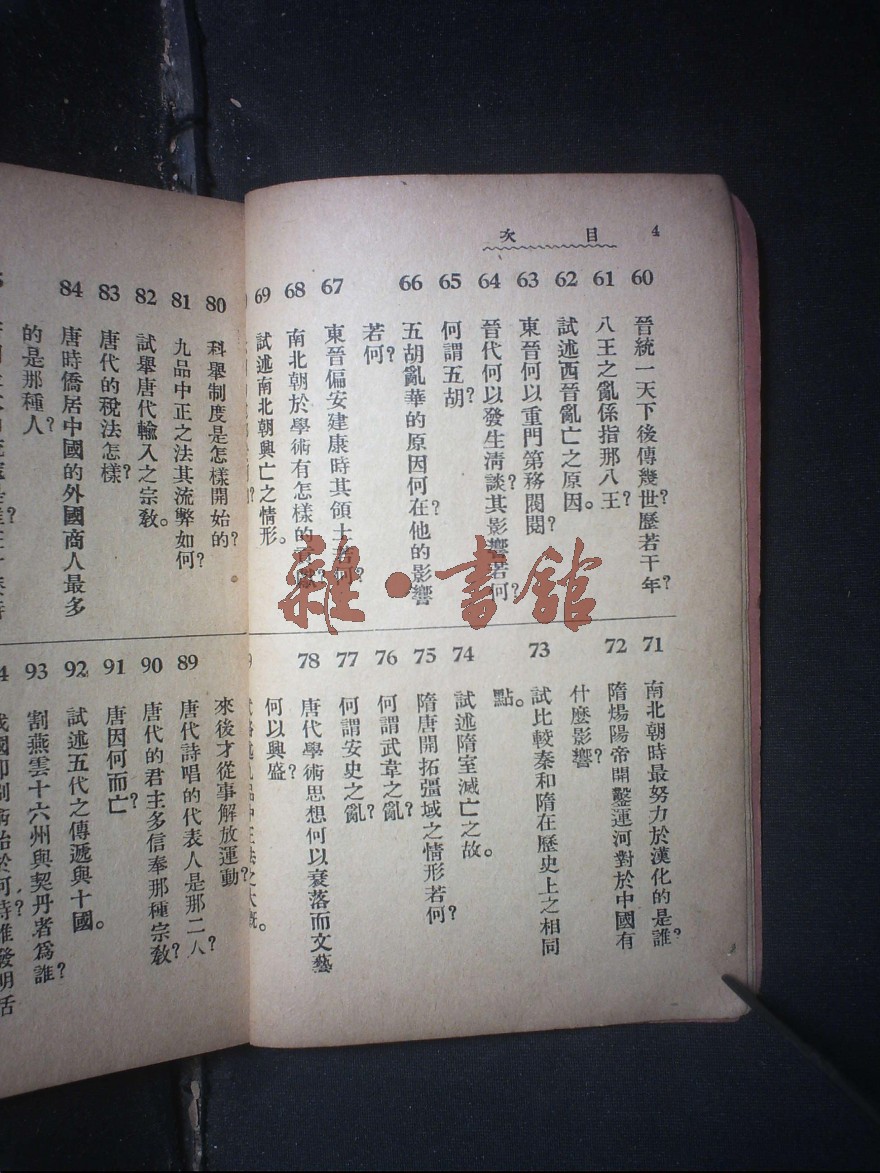 4 目 次
60 晉統一天下後傳幾世?歷若干年?
61 八王之亂係指那八王?
62 試述西晉亂亡之原因。
63 東晉何以重門第務閥閱?
64 晉代何以發生淸談?其影響若何?
65 何謂五胡?
66 五胡亂華的原因何在?他的影響
若何?
67 東晉偏安建康時其領土若何?
68 南北朝於學術有怎樣的
69 試述南北朝興亡之情形。
71 南北朝時最努力於漢化的是誰?
72 隋煬陽帝開鑿運河對於中國有
什麼影響?
73 試比較秦和隋在歷史上之相同
點。
74 試述隋室滅亡之故。
75 隋唐開拓彊域之情形若何?
76 何謂武韋之亂?
77 何謂安史之亂?
78 唐代學術思想何以衰落而文藝
何以興盛?
80 科舉制度是怎樣開始的?
81 九品中正之法其流弊如何?
82 試舉唐代輸入之宗敎。
83 唐代的稅法怎樣?
84 唐時僑居中國的外國商人最多
的是那種人?
來後才從事解放運動?
89 唐代詩唱的代表人是那二人?
90 唐代的君主多信奉那種宗敎?
91 唐因何而亡?
92 試述五代之傳遞與十國。
93 割燕雲十六州與契丹者爲誰?
雜·書館